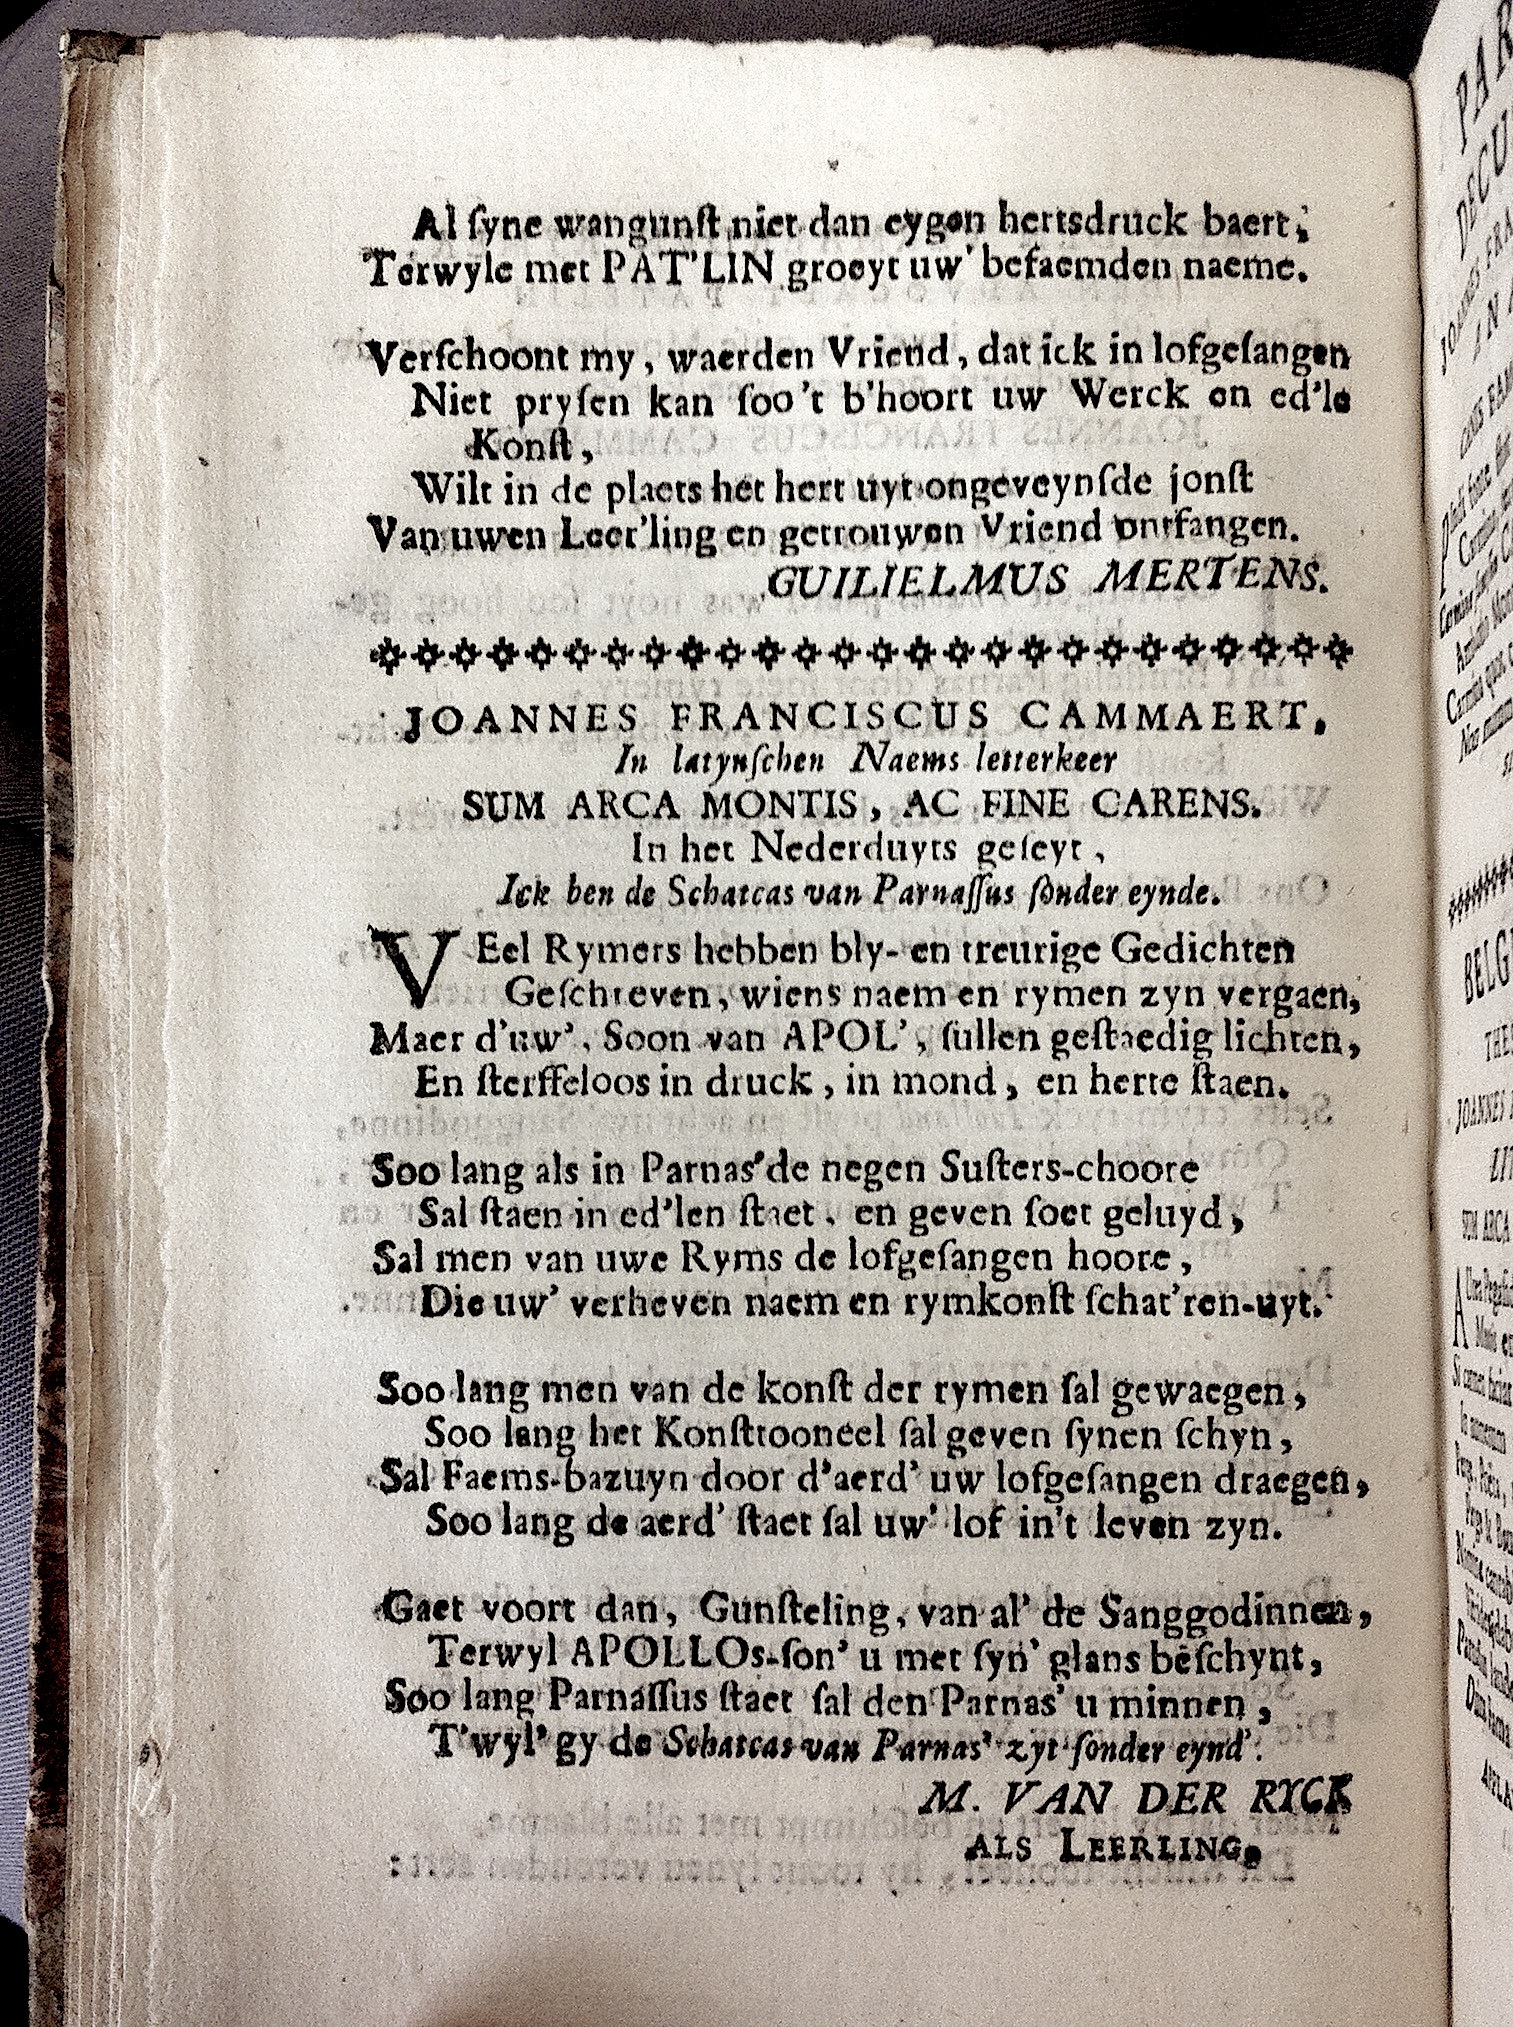 Al ſyne wangunſt niet dan eygen hertsdruck baert;
Terwyle met PAT'LIN groeyt uw' befaemden naeme.
Verſchoont my, waerden Vriend, dat ick in lofgeſangen
Niet pryſen kan ſoo 't b'hoort uw Werck en ed'le
Konſt,
Wilt in de plaets het hert uyt ongeveynſde jonſt
Van uwen Leer'ling en getrouwen Vriend ontfangen.
GUILIELMUS MERTENS.
JOANNES FRANCISCUS CAMMAERT,
In latynſchen Naems letterkeer
SUM ARCA MONTIS, AC FINE CARENS.
In het Nederduyts geſeyt,
Ick ben de Schatcas van Parnaſſus ſonder eynde.
VEel Rymers hebben bly- en treurige Gedichten
Geſchreven, wiens naem en rymen zyn vergaen,
Maer d'uw', Soon van APOL', ſullen geſtaedig lichten,
En ſterffeloos in druck, in mond, en herte ſtaen.
Soo lang als in Parnas' de negen Suſters-choore
Sal ſtaen in ed'len ſtaet, en geven ſoet geluyd,
Sal men van uwe Ryms de lofgeſangen hoore,
Die uw' verheven naem en rymkonſt ſchat'ren-uyt.
Soo lang men van de konſt der rymen ſal gewaegen,
Soo lang het Konſttooneel ſal geven ſynen ſchyn,
Sal Faems-bazuyn door d'aerd' uw lofgeſangen draegen,
Soo lang de aerd' ſtaet ſal uw' lof in't leven zyn.
Gaet voort dan, Gunſteling, van al' de Sanggodinnen,
Terwyl APOLLOs-ſon' u met ſyn' glans beſchynt,
Soo lang Parnaſſus ſtaet ſal den Parnas' u minnen,
T'wyl' gy de Schatcas van Parnas' zyt ſonder eynd'.
M. VAN DER RYCK
ALS LEERLING.